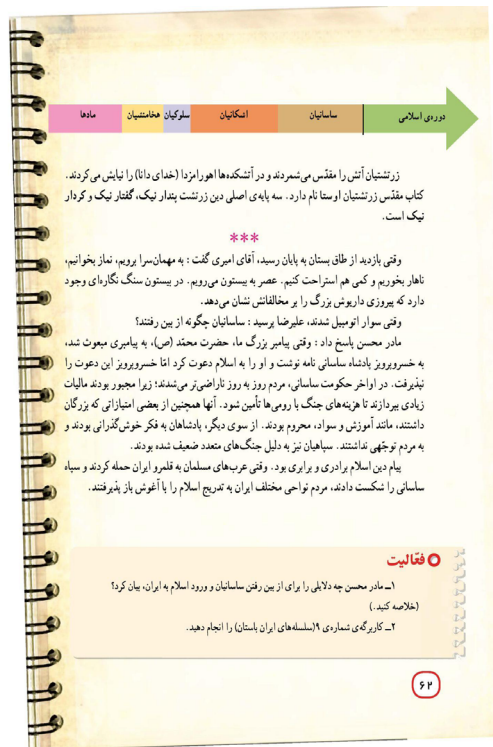 مادها هخامنشیان سلوکیان اشکانیان ساسانیان دوره‌ی اسلامی
زرتشتیان آتش را مقدّس می‌شمردند و در آتشکده‌ها اهورامزدا (خدای دانا) را نیایش می‌کردند.
کتاب مقدّس زرتشتیان اوستا نام دارد. سه پایه‌ی اصلی دین زرتشت پندار نیک، گفتار نیک و کردار
نیک است.
***
وقتی بازدید از طاق بستان به پایان رسید، آقای امیری گفت : به مهمان‌سرا برویم، نماز بخوانیم،
ناهار بخوریم و کمی هم استراحت کنیم. عصر به بیستون می‌رویم. در بیستون سنگ نگاره‌ای وجود
دارد که پیروزی داریوش بزرگ را بر مخالفانش نشان می‌دهد.
وقتی سوار اتومبیل شدند، علیرضا پرسید : ساسانیان چگونه از بین رفتند؟
مادر محسن پاسخ داد : وقتی پیامبر بزرگ ما، حضرت محمّد (ص)، به پیامبری مبعوث شد،
به خسروپرویز پادشاه ساسانی نامه نوشت و او را به اسلام دعوت کرد امّا خسروپرویز این دعوت را
نپذیرفت. در اواخر حکومت ساسانی، مردم روز به روز ناراضی‌تر می‌شدند؛ زیرا مجبور بودند مالیات
زیادی بپردازند تا هزینه‌های جنگ با رومی‌ها تأمین شود. آنها همچنین از بعضی امتیازاتی که بزرگان
داشتند، مانند آموزش و سواد، محروم بودند. از سوی دیگر، پادشاهان به فکر خوش‌گذرانی بودند و
به مردم توجّهی نداشتند. سپاهیان نیز به دلیل جنگ‌های متعدد ضعیف شده بودند.
پیام دین اسلام برادری و برابری بود. وقتی عرب‌های مسلمان به قلمرو ایران حمله کردند و سپاه
ساسانی را شکست دادند، مردم نواحی مختلف ایران به تدریج اسلام را با آغوش باز پذیرفتند.
فعّالیت
۱ــ مادر محسن چه دلایلی را برای از بین رفتن ساسانیان و ورود اسلام به ایران، بیان کرد؟
(خلاصه کنید.)
۲ــ کاربرگه‌ی شماره‌ی ۹(سلسله‌های ایران باستان) را انجام دهید.
۶۲